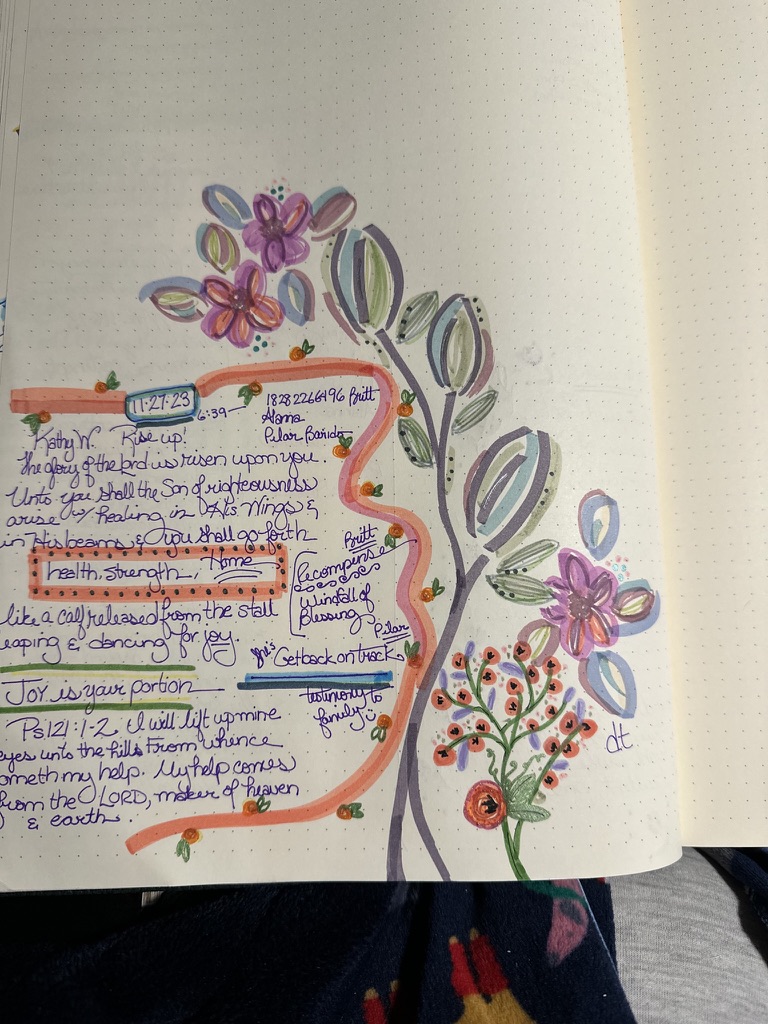 11.27.23
6:39—
18282266496 Britt
Alama
Pilar Barido
Kathy W. Rise up!
The glory of the Lord is risen upon you
Unto you shall the Son of righteousness
arise w/ healing in His Wings &
in His beams, & you shall go forth
health, strength, Home
like a calf released from the stall
leaping & dancing for joy.
Britt
Recompense
windfall of
Blessing
Pilar
Get back on track
testimony to
family
JOY is your portion
Ps 121:1-2 I will lift up mine
eyes unto the hills From whence
cometh my help. My help comes
from the LORD, maker of heaven
& earth.
dt